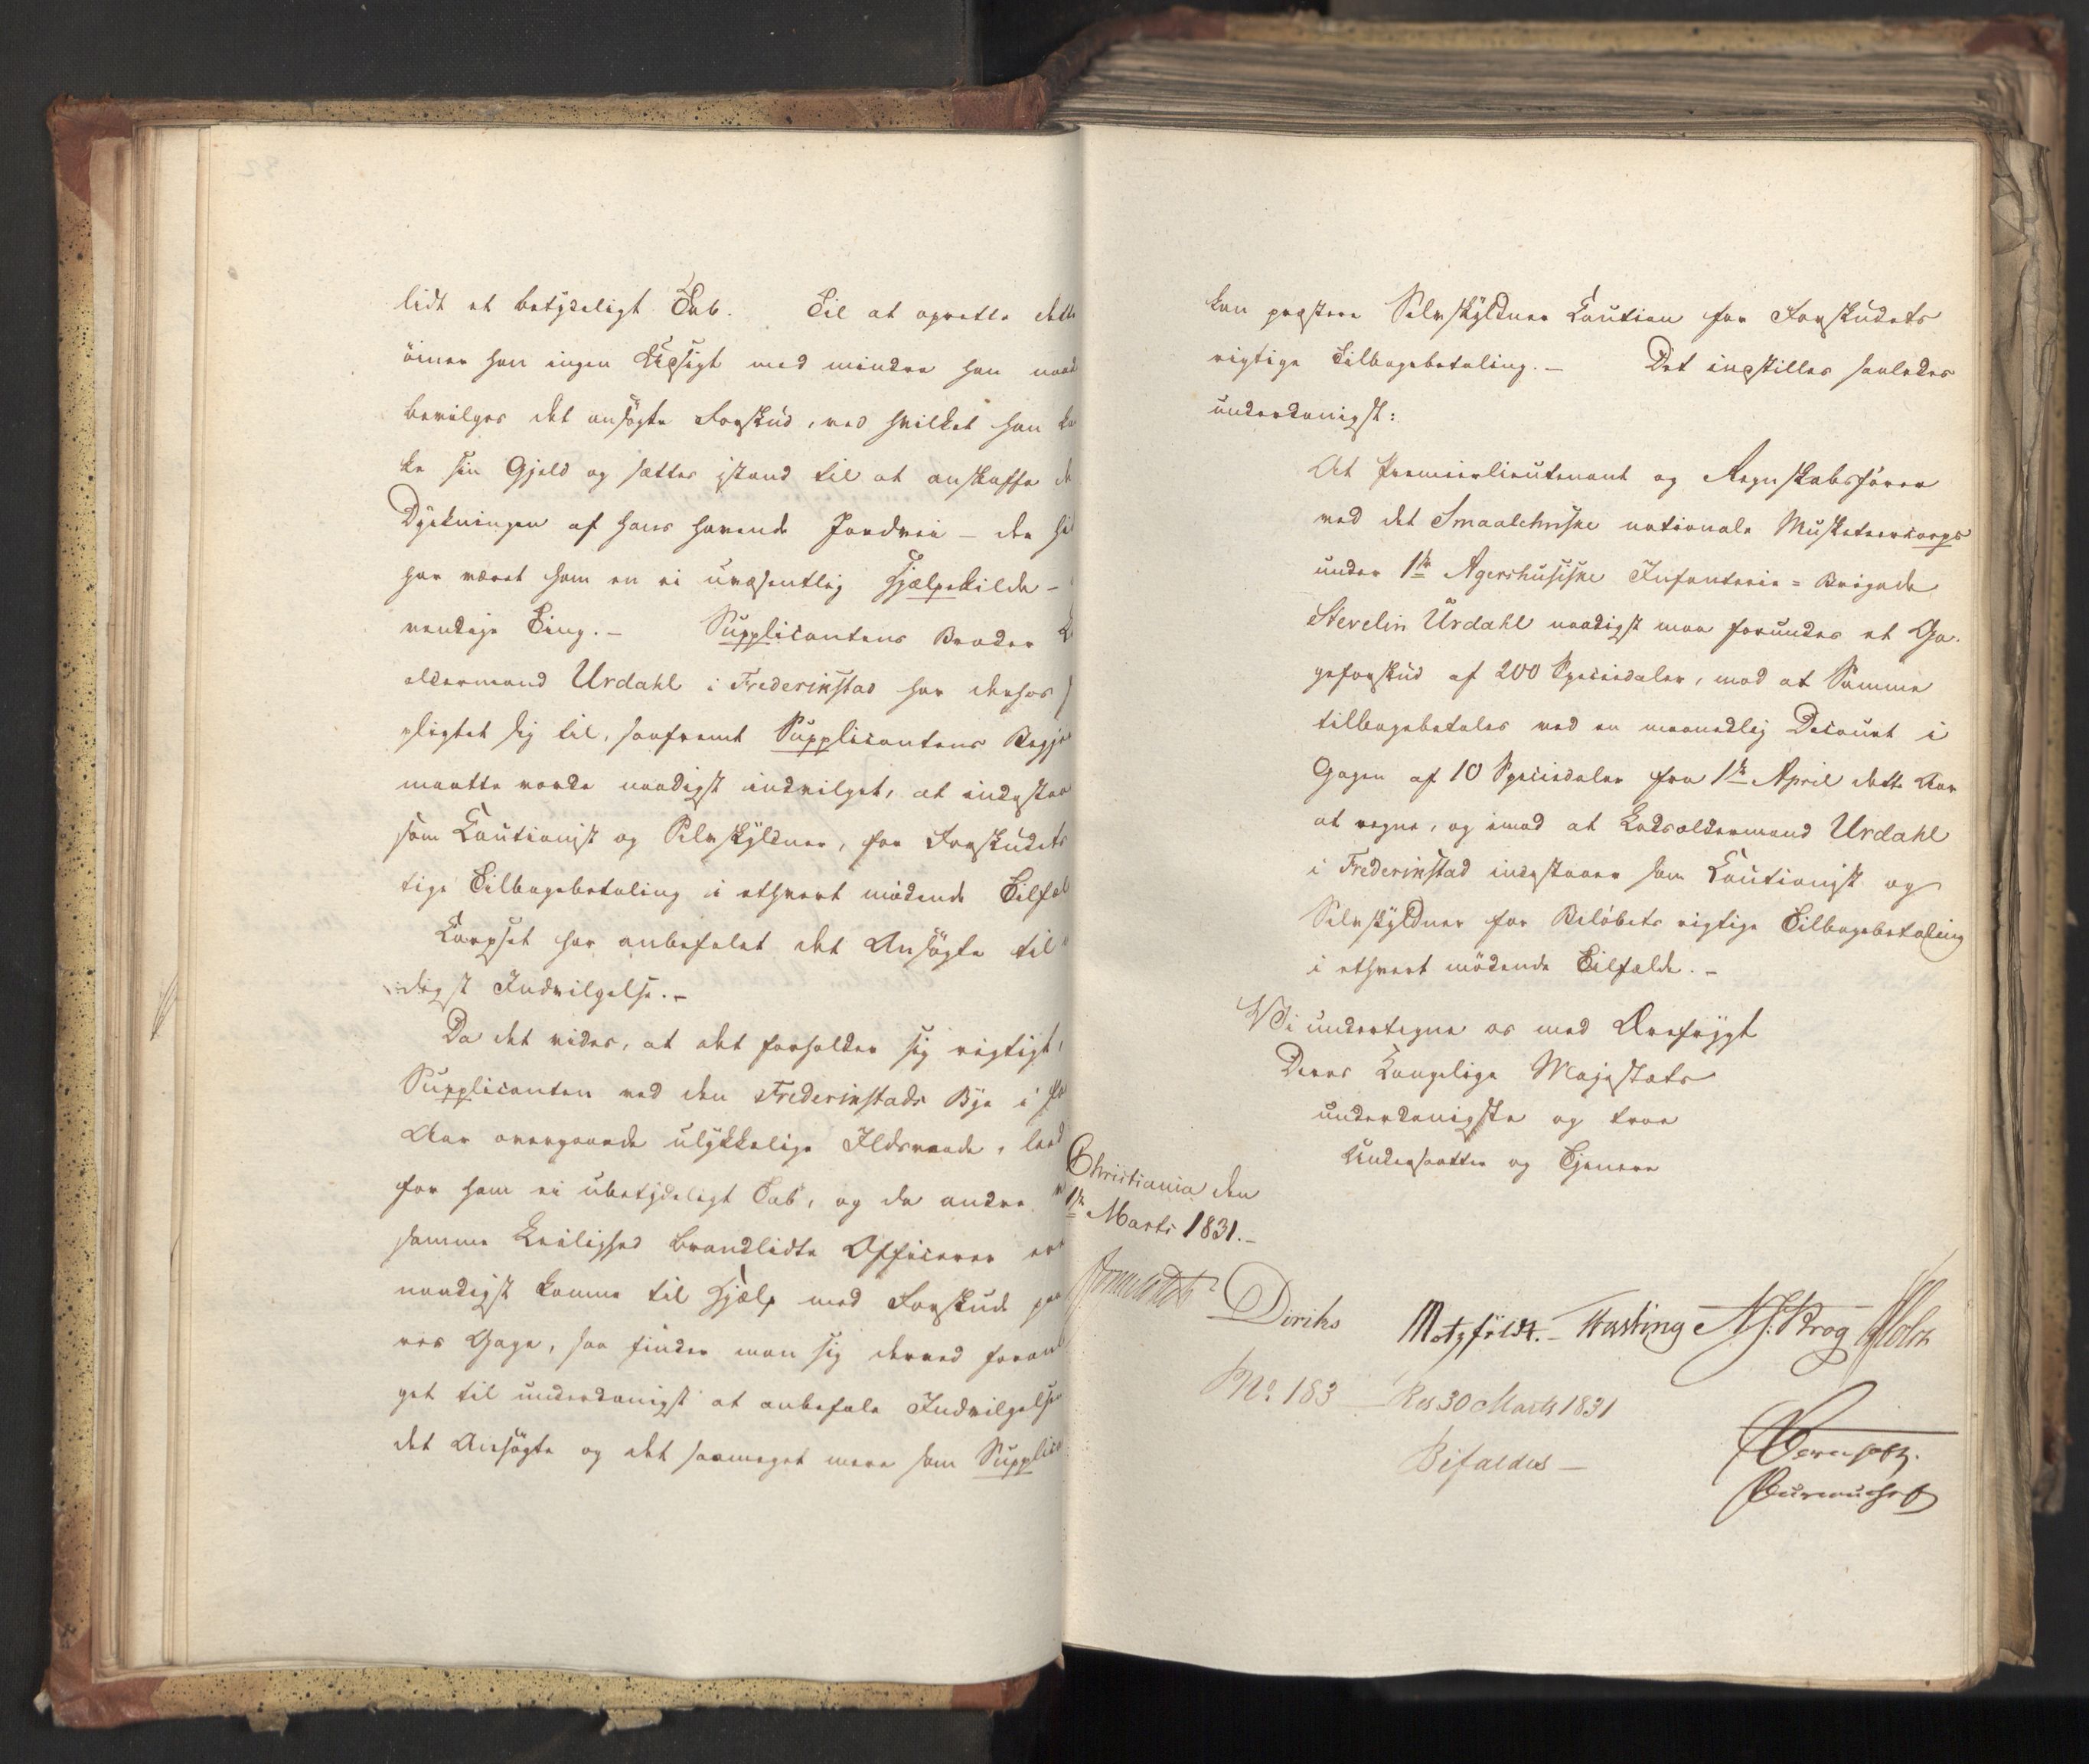 lidt et betydeligt Tab. Til at oprette dette
öiner han ingen Udsigt med mindre han naad
bevilges det ansøgte Forskud, ved hvilket han kan
ke sin Gjeld og sættes istand til at anskaffe de
Dyrkningen af hans havende Jordvei - der hid
har været ham en ei uvæsentlig Hjælpekilde -
vendige Ting. - Supplicantens Broder Lo
oldermand Urdahl i Frederikstad har derhos f
pligtet sig til, saafremt Supplicantens Begjæ
maatte vorde naadigst indvilget, at indestaa
som Cautionist og Selvskyldner, for Forskudets
tige Tilbagebetaling i ethvert mødende Tilfæl
Corpset har anbefalet det Ansøgte til
digst Indvilgelse. -
Da det vides, at det forholder sig rigtigt,
Supplicanten ved den Frederikstads Bye i
Aar overgaaede ulykkelige Ildsvaade, leed
for ham ei ubetydeligt Tab, og da andre
samme Leilighed brandlidte Officerer ere
naadigst komne til Hjælp med Forskud paa
res Gage, saa finder man sig derved foranl
get til underdanigst at anbefale Indvilgelsen
det Ansøgte og det saameget mere som Supplica
kan præstere Selvskyldner Caution for Forskudets
rigtige Tilbagebetaling. - Det indstilles saaledes
underdanigst:
At Premierlieutenant og Regnskabsfører
ved det Smaalehnske nationale Musketeercorps
under 1ste Agershusiske Infanterie-Brigade
Steelin Urdahl naadigst maa forundes et Ga-
geforskud af 200 Speciedaler, mod at Samme
tilbagebetales ved en maanedlig Decourt i
Gagen af 10 Speciedaler fra 1ste April dette Aar
at regne, og imod at Lodsoldermand Urdahl
i Frederikstad indestaaer som Cautionist og
Selvskyldner for Beløbets rigtige Tilbagebetaling
i ethvert mødende Tilfælde. -
Vi undertegne os med Ærefrygt
Deres Kongelige Majestæts
underdanigste og troe
Undersaatter og Tjenere
Christiania den
1ste Marts 1831. -
Diriks Motzfeldt. - Fasting N. J. Krog Holst
No 183 Res 30 Marts 1831
Bifaldes -